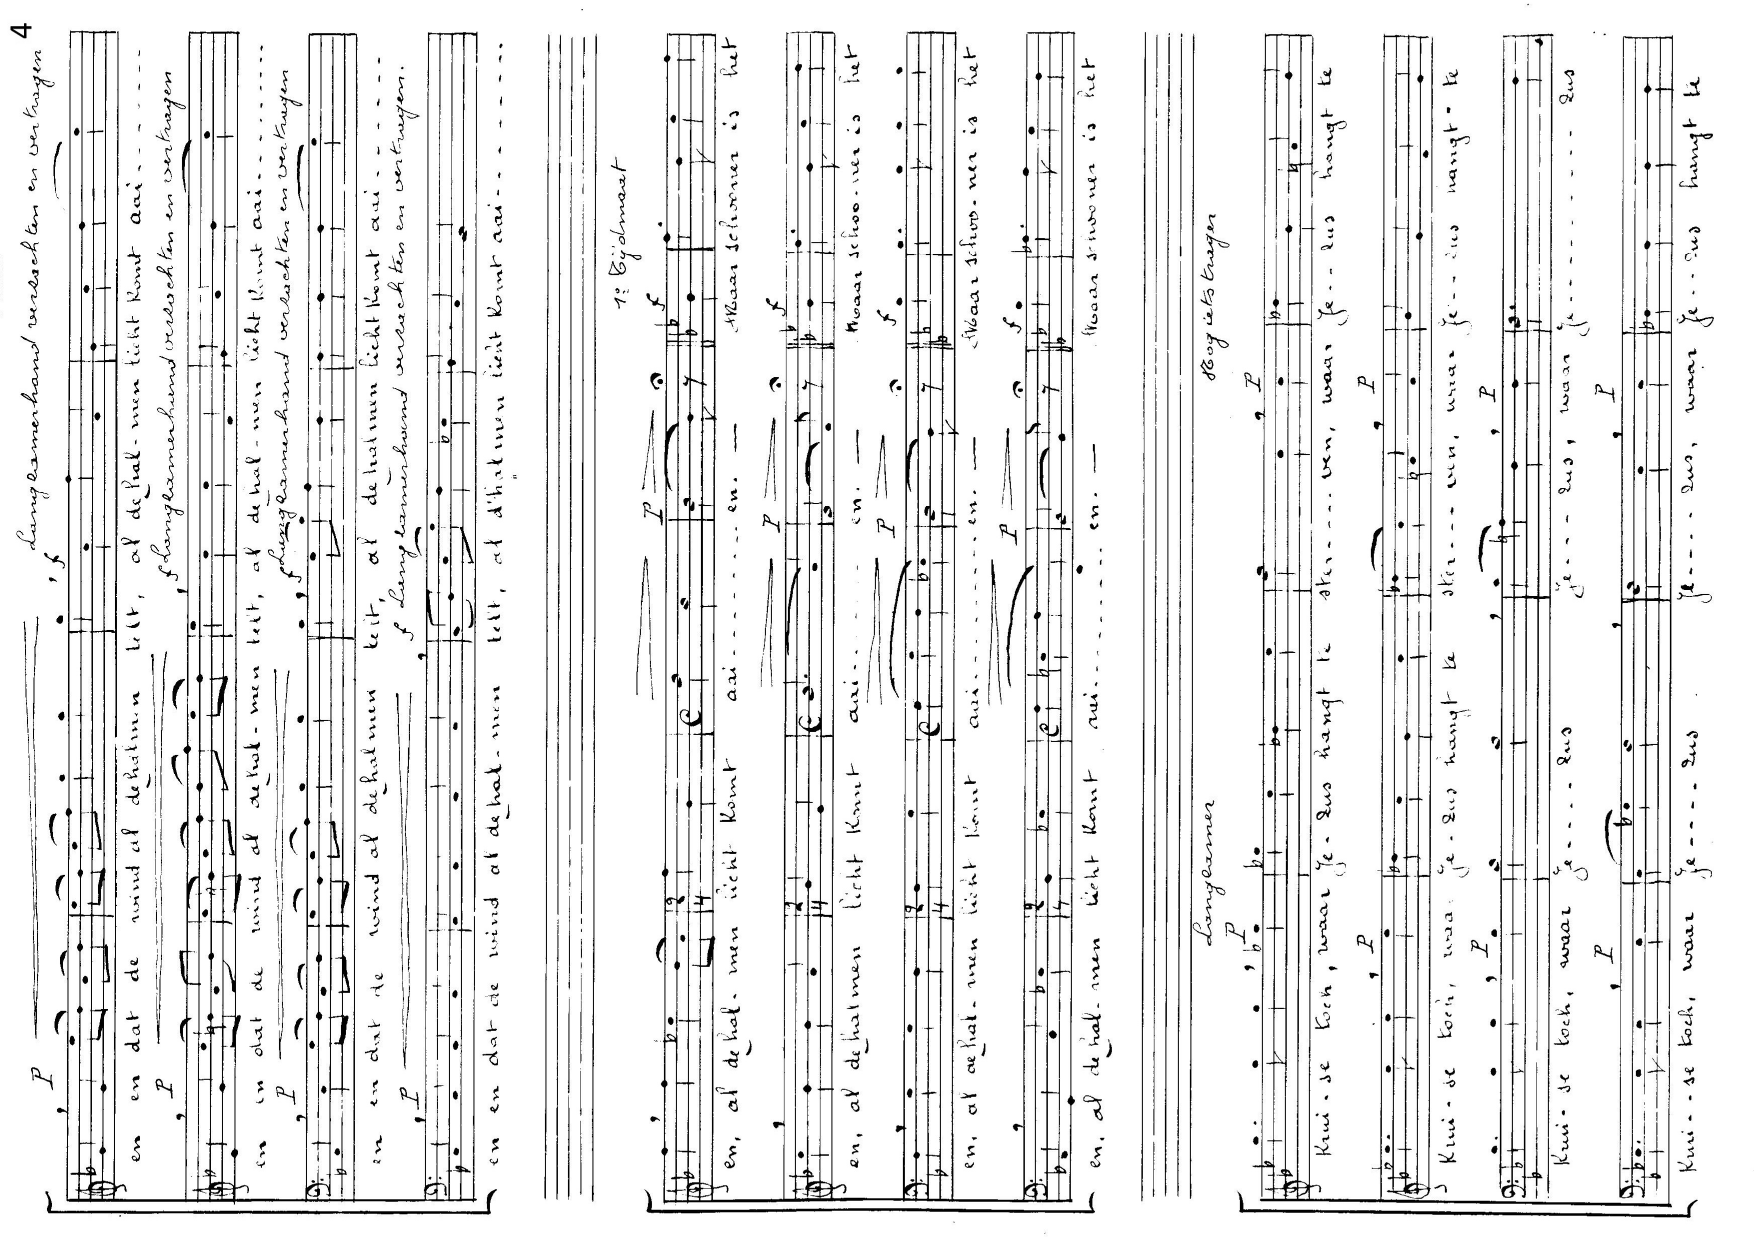 4
Langzamerhand verzachten en vertragen
P f
en en dat de wind al de halmen telt, al de hal-men licht komt aai - - - - - -
Langzamerhand verzachten en vertragen
P f
en dat de wind al de hal-men telt, al de hal-men licht komt aai - - - - - - - -
Langzamerhand verzachten en vertragen
P f
en en dat de wind al de halmen telt, al de halmen licht komt aai - - - - - - -
Langzamerhand verzachten en vertragen.
P f
en en dat de wind al de hal-men telt, al d'halmen licht komt aai - - - - - - - -
1e Tijdmaat
P f
en, al de hal-men licht komt aai - - - - - - - en. — Maar schooner is het
P f
en, al de halmen licht komt aai - - - - - en. — Maar schoo-ner is het
P f
en, al de hal-men licht komt aai - - - - - - en. — Maar schoo-ner is het
P f
en, al de hal-men licht komt aai - - - - - - - en. — Maar schooner is het
Langzamer Nog iets trager
P P
Krui-se toch, waar Je-zus hangt te ster - - - - ven, waar Je - - zus hangt te
P P
Krui-se toch, waar Je-zus hangt te ster - - - ven, waar Je - - zus hangt te
P P
Krui-se toch, waar Je - - - - - zus Je - - - - zus, waar Je - - - - - - - - zus
P P
Krui - - se toch, waar Je - - - - zus Je - - - - zus, waar Je - - - zus hangt te